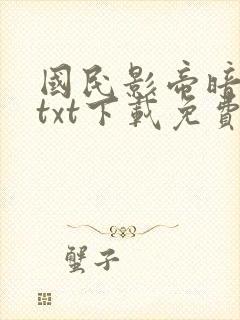 國民影帝暗
txt下載免費
蟹子